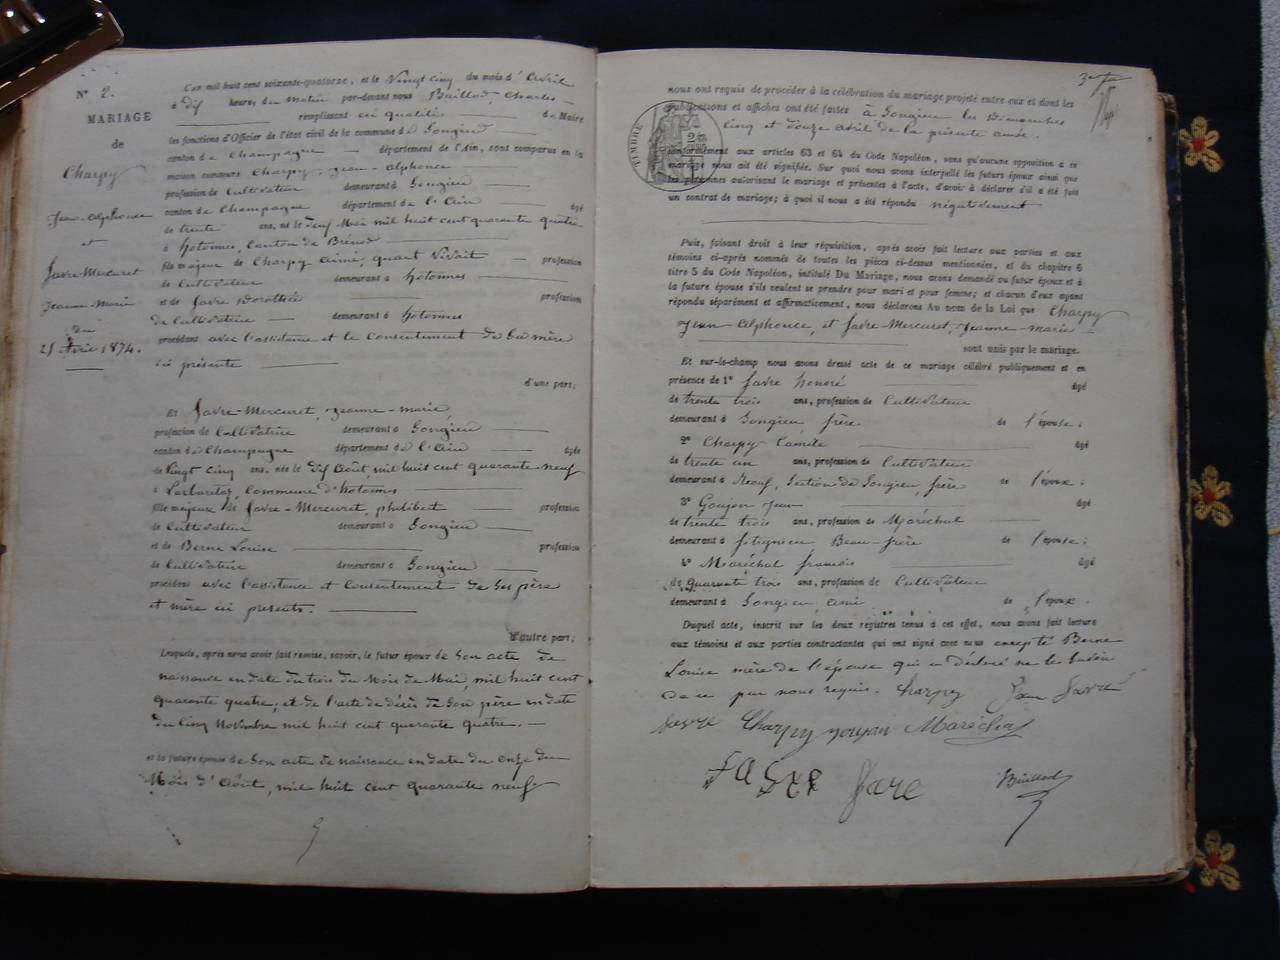 N° 2.
MARIAGE
de
Charpy
Jean-Alphonce
et
Favre-Mercuret
Jeanne-Marie
du
25 Avril 1874.
L'an mil huit cent soixante-quatorze, et le Vingt cinq du mois d'Avril
à dix heures, du matin par-devant nous Baillod, Charles
remplissant en qualité de Maire
les fonctions d'Officier de l'état civil de la commune de Songieu
canton de Champagne département de l'Ain, sont comparus en la
maison commune Charpy, Jean-Alphonce
profession de Cultivateur demeurant à Songieu
canton de Champagne département de l'Ain âgé
de trente ans, né le Mai mil huit cent quarante quatre
à hotonnes, Canton de Brénod
fils majeur de Charpy Aimé, quant Vivait profession
de Cultivateur demeurant à hotonnes
et de Favre Dorothée profession
de Cultivatrice demeurant à hotonnes
procédant avec l'assistance et le Consentement de Sa mère
ici présente
d'une part;
Et Favre-Mercuret, Jeanne-marie
profession de Cultivatrice demeurant à Songieu
canton de Champagne département de l'Ain âgée
de Vingt cinq ans, née le dix Août, mil huit cent quarante neuf
à Commune d'hotonnes
fille majeure de Favre-Mercuret, philibert profession
de Cultivateur demeurant à Songieu
et de Berne Louise profession
de Cultivatrice demeurant à Songieu
procédant avec l'assistance et Consentement de Ses père
et mère ici présents.
D'autre part;
Lesquels, après nous avoir fait remise, savoir, le futur époux de Son acte de
naissance en date du trois du Mois de Mai, mil huit cent
quarante quatre; et de l'acte de décès de Son père en date
du Cinq Novembre mil huit cent quarante quatre.
et la future épouse de Son acte de naissance en date du onze du
Mois d'Août, mil huit cent quarante neuf
nous ont requis de procéder à la célébration du mariage projeté entre eux et dont les
publications et affiches ont été faites à Songieu les Dimanches
Cinq et douze avril de la présente année.
TIMBRE
Conformément aux articles 63 et 64 du Code Napoléon, sans qu'aucune opposition à ce
mariage nous ait été signifiée. Sur quoi nous avons interpellé les futurs époux ainsi que
les personnes autorisant le mariage et présentes à l'acte, d'avoir à déclarer s'il a été fait
un contrat de mariage; à quoi il nous a été répondu négativement
Puis, faisant droit à leur réquisition, après avoir fait lecture aux parties et aux
témoins ci-après nommés de toutes les pièces ci-dessus mentionnées, et du chapitre 6
titre 5 du Code Napoléon, intitulé Du Mariage, nous avons demandé au futur époux et à
la future épouse s'ils veulent se prendre pour mari et pour femme; et chacun d'eux ayant
répondu séparément et affirmativement, nous déclarons Au nom de la Loi que Charpy
Jean Alphonce, et Favre-Mercuret, Jeanne-marie
sont unis par le mariage.
Et sur-le-champ nous avons dressé acte de ce mariage célébré publiquement et en
présence de 1° Favre honoré âgé
de trente trois ans, profession de Cultivateur
demeurant à Songieu frère de l'épouse;
2° Charpy Camile âgé
de trente un ans, profession de Cultivateur
demeurant à Section de Songieu, frère de l'époux;
3° Goujon Jean âgé
de trente trois ans, profession de Maréchal
demeurant à Beau-frère de l'épouse;
4° Maréchal françois âgé
de quarante trois ans, profession de Cultivateur
demeurant à Songieu, ami de l'époux.
Duquel acte, inscrit sur les deux registres tenus à cet effet, nous avons fait lecture
aux témoins et aux parties contractantes qui ont signé avec nous excepté Berne
Louise mère de l'épouse qui a déclaré ne le Savoir
de ce par nous requis. Charpy Favre
Favre Charpy goujon Maréchal
FAVRE Favre Baillod